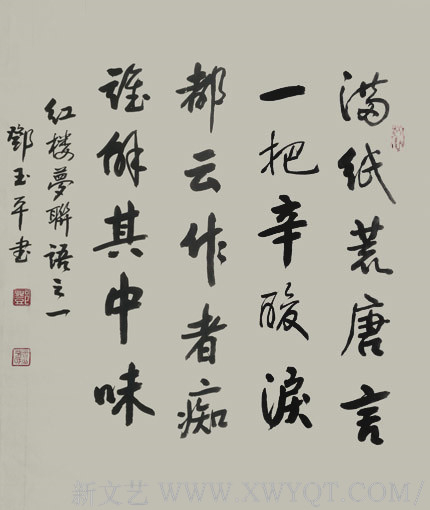 满纸荒唐言
一把辛酸淚
都云作者痴
誰解其中味
红楼夢聯語之一
鄧玉平书
新文艺 WWW.XWYQT.COM/